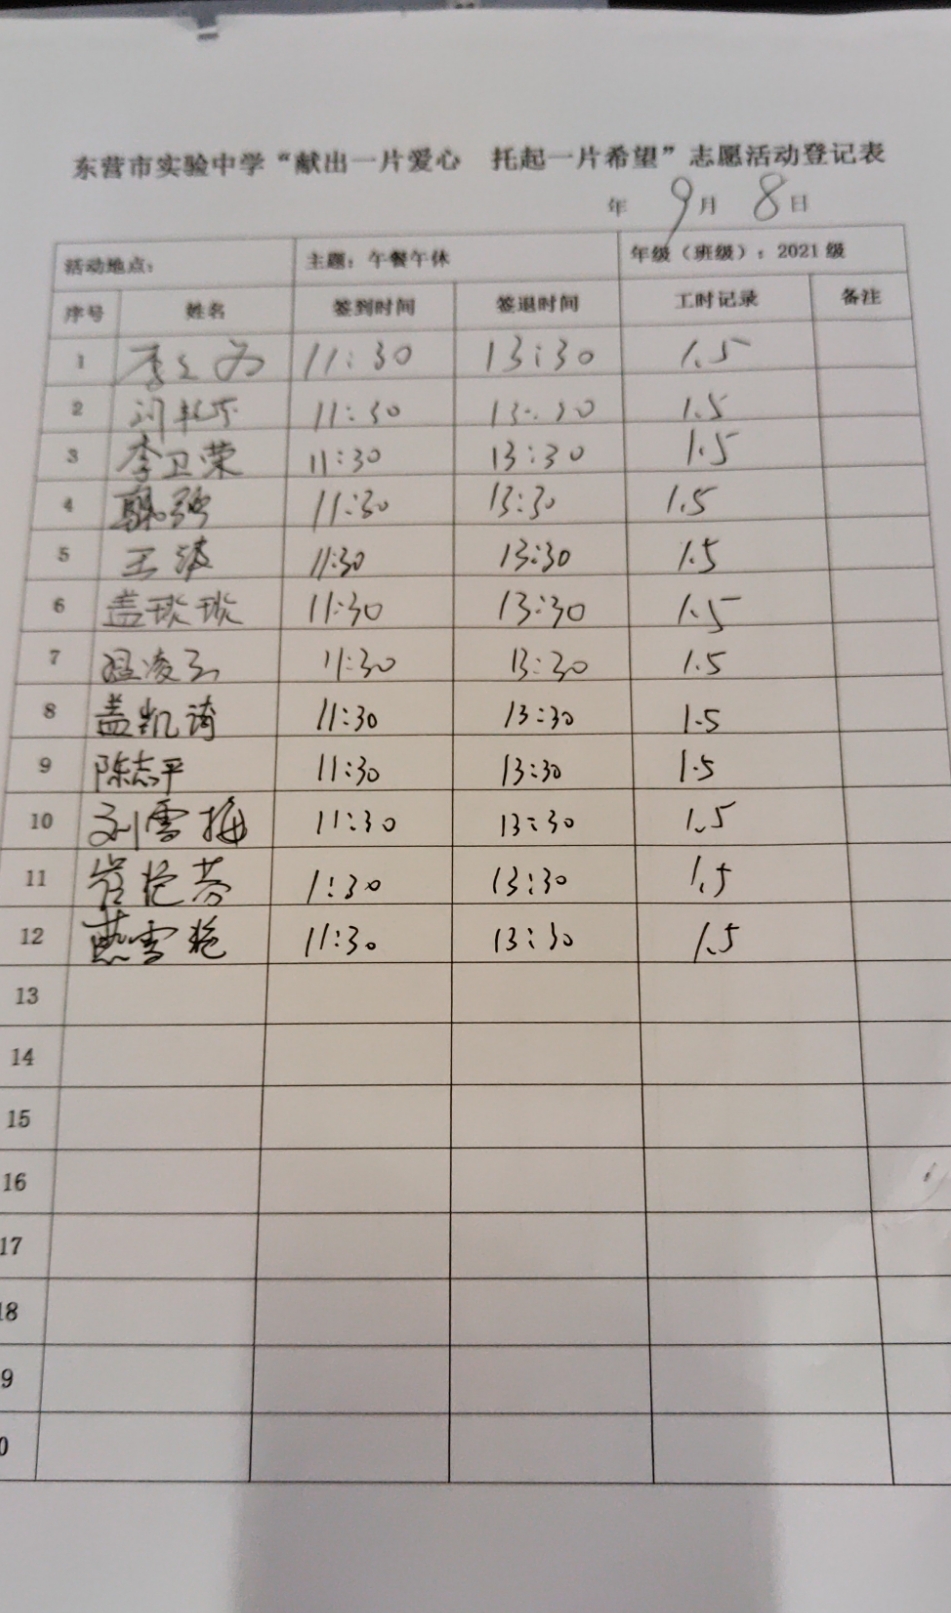 东营市实验中学“献出一片爱心 托起一片希望”志愿活动登记表
年 9月 8日
活动地点: 主题: 午餐午休 年级(班级): 2021级
序号 姓名 签到时间 签退时间 工时记录 备注
1 李 11:30 13:30 1.5
2 刘 11:30 13:30 1.5
3 李卫荣 11:30 13:30 1.5
4 强 11:30 13:30 1.5
5 王波 11:30 13:30 1.5
6 盖琰琰 11:30 13:30 1.5
7 凌云 11:30 13:30 1.5
8 盖凯 11:30 13:30 1.5
9 陈志平 11:30 13:30 1.5
10 刘雪梅 11:30 13:30 1.5
11 芬 1:30 13:30 1.5
12 燕雪艳 11:30 13:30 1.5
13
14
15
16
17
18
9
0